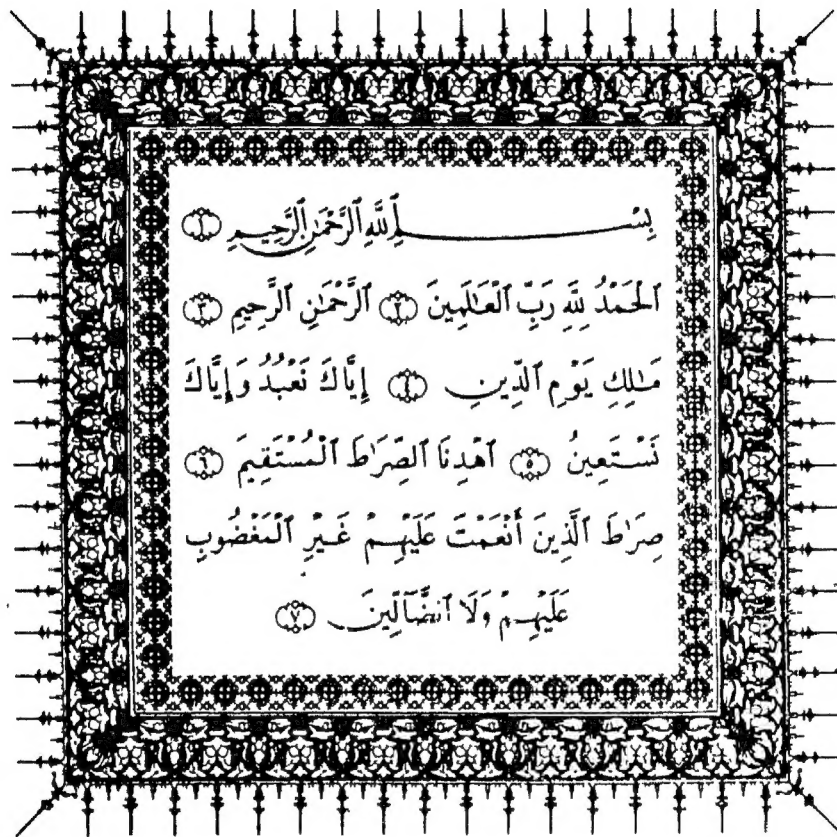 بِسْمِ ٱللَّهِ ٱلرَّحْمَٰنِ ٱلرَّحِيمِ ۝١
ٱلْحَمْدُ لِلَّهِ رَبِّ ٱلْعَٰلَمِينَ ۝٢ ٱلرَّحْمَٰنِ ٱلرَّحِيمِ ۝٣
مَٰلِكِ يَوْمِ ٱلدِّينِ ۝٤ إِيَّاكَ نَعْبُدُ وَإِيَّاكَ
نَسْتَعِينُ ۝٥ ٱهْدِنَا ٱلصِّرَٰطَ ٱلْمُسْتَقِيمَ ۝٦
صِرَٰطَ ٱلَّذِينَ أَنْعَمْتَ عَلَيْهِمْ غَيْرِ ٱلْمَغْضُوبِ
عَلَيْهِمْ وَلَا ٱلضَّآلِّينَ ۝٧